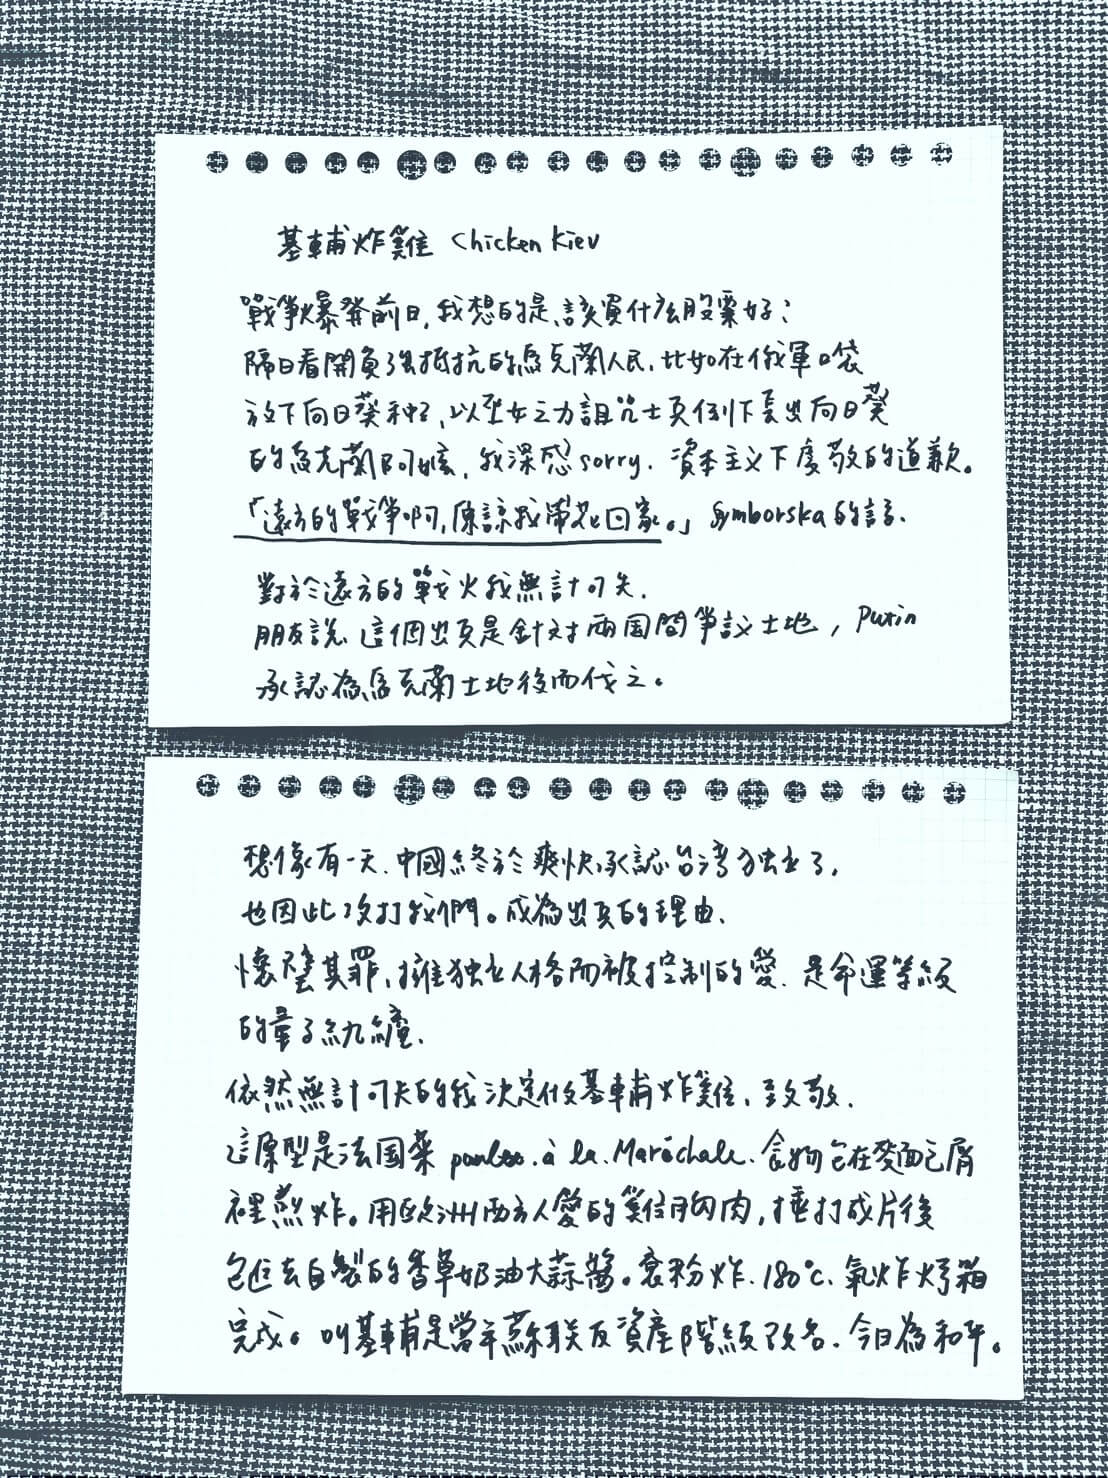 基輔炸雞 Chicken Kiev
戰爭爆發前日,我想的是,該買什么股票好;
隔日看開負強抵抗的烏克蘭人民,比如在俄軍口袋
放下向日葵種子,以聖女之力詛咒士兵倒下長出向日葵
的烏克蘭阿嬤,我深感sorry.資本主義下虔敬的道歉。
「遠方的戰爭啊,原諒我帶花回家。」Symborska的話.
對於遠方的戰火我無計可失.
朋友說 這個出兵是針對兩国間爭議土地,Putin
承認為烏克蘭土地後而伐之。
想像有一天.中國終於爽快承認台灣独立了,
也因此攻打我們。成為出兵的理由.
懷璧其罪,擁独立人格而被控制的愛.是命運等級
的辜子糾纏.
依然無計可失的我決定做基輔炸雞,致敬.
這原型是法国菜 poulet à la Maréchale.食物包在麵包屑
裡煎炸。用歐洲西方人愛的雞胸肉,捶打成片後
包住去自製的香草奶油大蒜醬。裹粉炸.180℃.氣炸烤箱
完成。叫基輔是當年蘇联反資產階級改名.今日為和平。